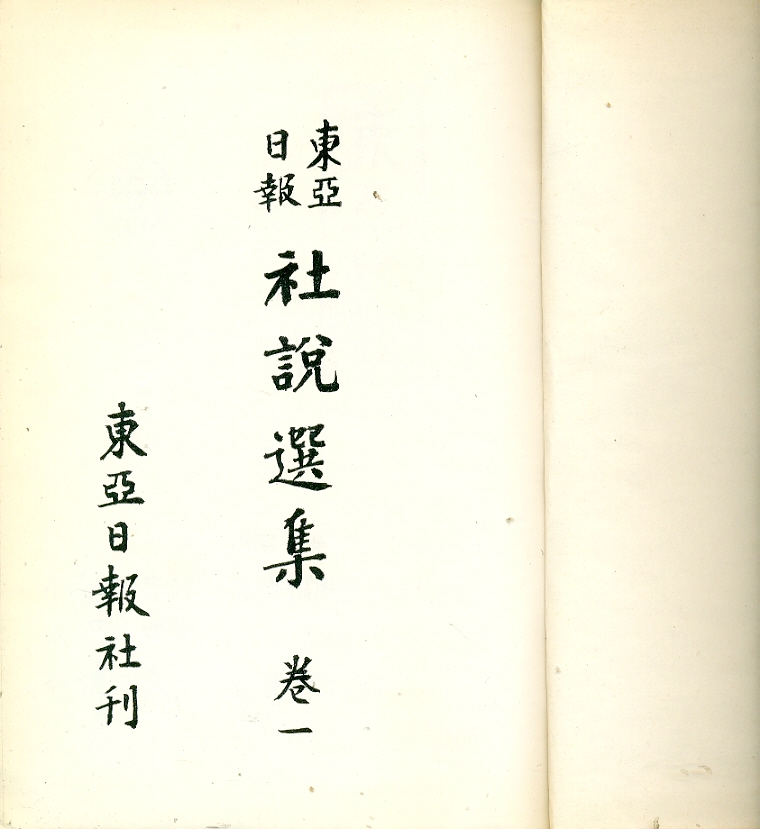 東亞
日報
社說選集 卷一
東亞日報社刊